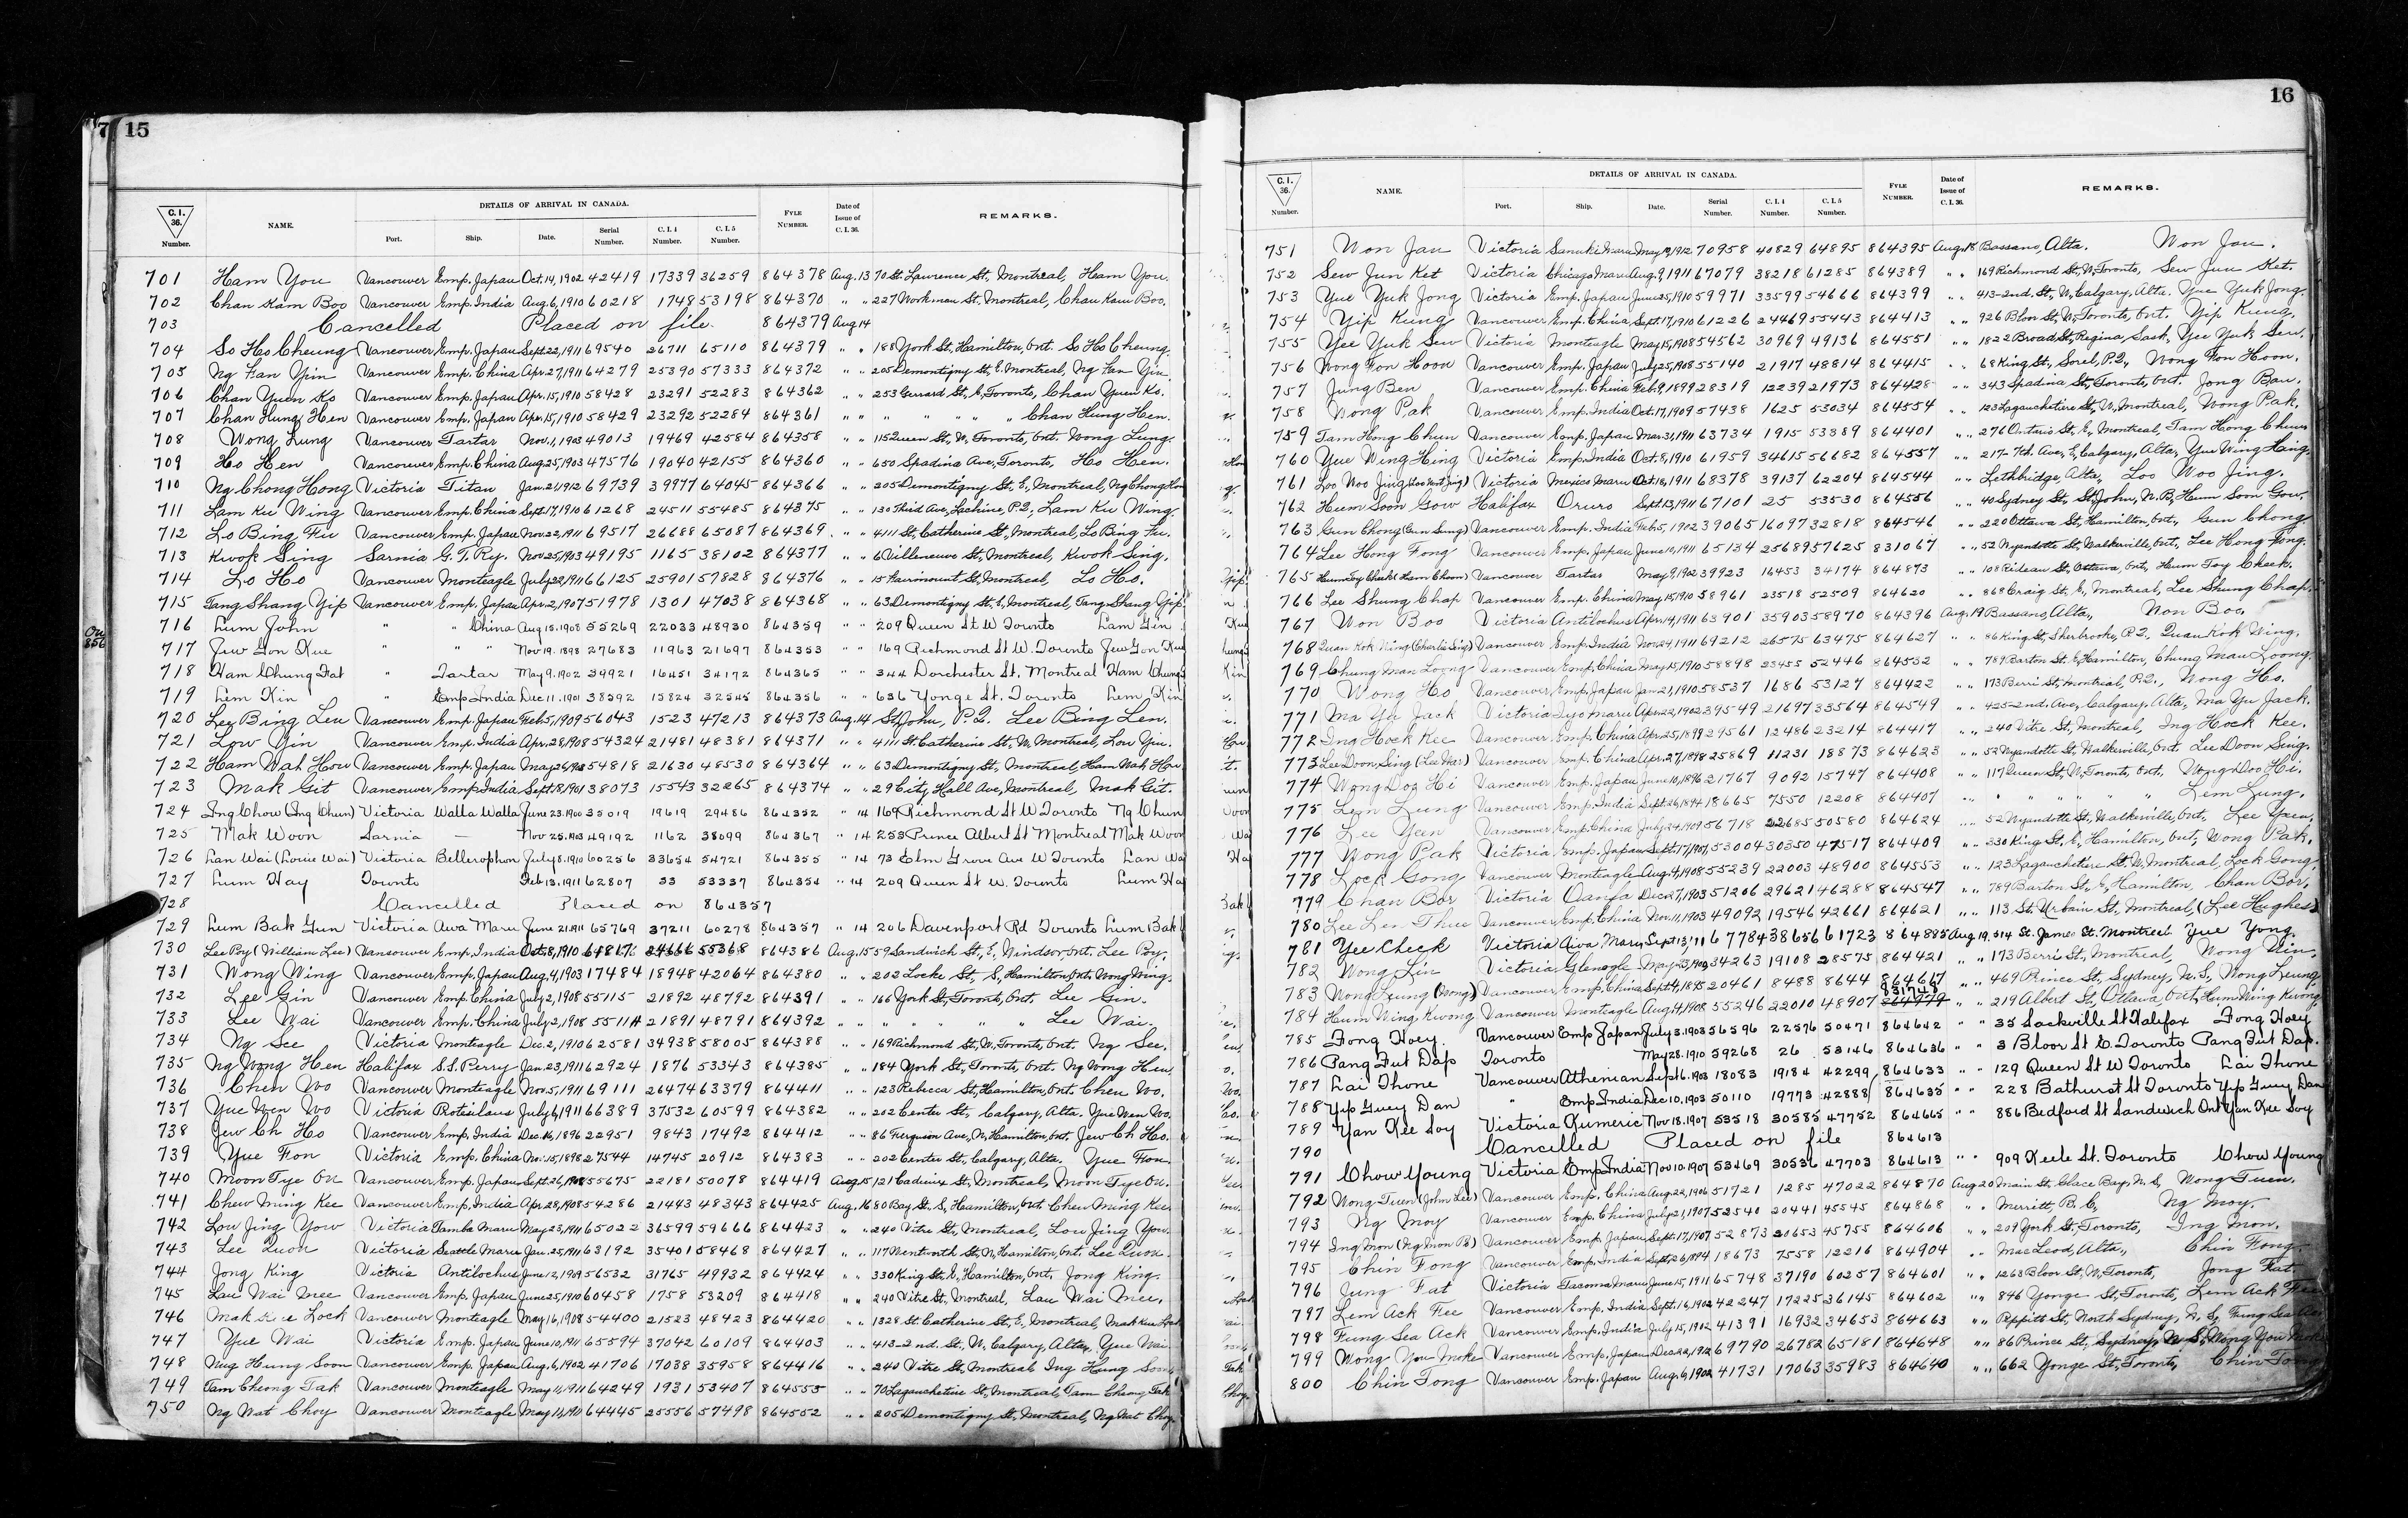 7 15
DETAILS OF ARRIVAL IN CANADA.
C. I. 36. Number. NAME. Port. Ship. Date. Serial Number. C. I. 4 Number. C. I. 5 Number. FYLE NUMBER. Date of Issue of C. I. 36. REMARKS.
701 Ham You Vancouver Emp. Japan Oct. 14, 1902 42419 17339 36259 864378 Aug. 13 70 St. Lawrence St., Montreal, Ham You.
702 Chan Kam Boo Vancouver Emp. India Aug. 6, 1910 60218 1748 53198 864370 " " 227 Workman St., Montreal, Chan Kam Boo.
703 Cancelled Placed on file. 864379 Aug 14
704 So Ho Cheung Vancouver Emp. Japan Sept. 22, 1911 69540 26711 65110 864379 " " 188 York St., Hamilton, Ont. So Ho Cheung.
705 Ng Fan Yin Vancouver Emp. China Apr. 27, 1911 64279 25390 57333 864372 " " 205 Demontigny St., E. Montreal, Ng Fan Yin.
706 Chan Yuen Ko Vancouver Emp. Japan Apr. 15, 1910 58428 23291 52283 864362 " " 253 Gerrard St., E, Toronto, Chan Yuen Ko.
707 Chan Hung Hen Vancouver Emp. Japan Apr. 15, 1910 58429 23292 52284 864361 " " " " " " Chan Hung Hen.
708 Wong Lung Vancouver Tartar Nov. 1, 1903 49013 19469 42584 864358 " " 115 Queen St., W, Toronto, Ont. Wong Lung.
709 Ho Hen Vancouver Emp. China Aug. 25, 1903 47576 19040 42155 864360 " " 650 Spadina Ave, Toronto, Ho Hen.
710 Ng Chong Hong Victoria Titan Jan. 21, 1912 69739 39977 64045 864366 " " 205 Demontigny St., E., Montreal, Ng Chong Hon
711 Lam Ku Wing Vancouver Emp. China Sept. 17, 1910 61268 24511 55485 864375 " " 130 Third Ave, Lachine, P.Q., Lam Kiu Wing.
712 Lo Bing Fu Vancouver Emp. Japan Nov. 22, 1911 69517 26688 65087 864369 " " 4111 St. Catherine St., Montreal, Lo Bing Fu.
713 Kwok Sing Sarnia G. T. Ry. Nov 25, 1903 49195 1165 38102 864377 " " 6 Villeneuve St., Montreal, Kwok Sing.
714 Lo Ho Vancouver Monteagle July 22, 1911 66125 25901 57828 864376 " " 15 Fairmount St., Montreal, Lo Ho.
715 Tang Shang Yip Vancouver Emp. Japan Apr. 2, 1907 51978 1301 47038 864368 " " 63 Demontigny St. E, Montreal, Tang Shang Yip
716 Lum John " " China Aug 15. 1908 55269 22033 48930 864359 " " 209 Queen St W Toronto Lam Gin
717 Jew Gon Kue " " " Nov 19. 1898 27683 11963 21697 864353 " " 169 Richmond St W. Toronto Jew Gon Kue
718 Ham Chung Fat " Tartar May 9. 1902 39921 16451 34172 864365 " " 344 Dorchester St. Montreal Ham Chung
719 Lim Kin " Emp India Dec 11. 1901 38592 15824 32545 864356 " " 636 Yonge St. Toronto Lem Kin
720 Lee Bing Leu Vancouver Emp. Japan Feb. 5, 1909 56043 1523 47213 864373 Aug. 14 St. John, P.Q. Lee Bing Len.
721 Low Yin Vancouver Emp. India Apr. 28, 1908 54324 21481 48381 864371 " " 4111 St. Catherine St., W. Montreal, Low Yin.
722 Ham Wah How Vancouver Emp. Japan May 26, 1908 54818 21630 48530 864364 " " 63 Demontigny St., Montreal, Ham Wah How
723 Mak Git Vancouver Emp. India Sept. 8, 1901 38073 15543 32265 864374 " " 29 City Hall Ave, Montreal, Mak Git.
724 Ing Chow (Ing Chun) Victoria Walla Walla June 23. 1900 35019 19619 29486 864352 " 14 169 Richmond St W Toronto Ng Chun
725 Mak Woon Sarnia — Nov 25. 1903 49192 1162 38099 864367 " 14 253 Prince Albert St Montreal Mak Woon
726 Lan Wai (Louie Wai) Victoria Bellerophon July 8. 1910 60256 33654 54721 864355 " 14 73 Elm Grove Ave W Toronto Lan Wa
727 Lum Hay Toronto Feb 13. 1911 62807 33 53337 864354 " 14 209 Queen St W. Toronto Lum Ha
728 Cancelled Placed on 864357
729 Lum Bak Gun Victoria Awa Maru June 21. 1911 65769 37211 60278 864357 " 14 206 Davenport Rd Toronto Lum Bak
730 Lee Poy (William Lee) Vancouver Emp. India Oct. 8, 1910 61817 24666 55368 864386 Aug. 15 59 Sandwich St., E, Windsor, Ont. Lee Poy.
731 Wong Wing Vancouver Emp. Japan Aug. 4, 1903 17484 18948 42064 864380 " " 202 Locke St., S, Hamilton, Ont. Wong Wing.
732 Lee Gin Vancouver Emp. China July 2, 1908 55115 21892 48792 864391 " " 166 York St., Toronto, Ont. Lee Gin.
733 Lee Wai Vancouver Emp. China July 2, 1908 55114 21891 48791 864392 " " " " " " Lee Wai.
734 Ng See Victoria Monteagle Dec. 2, 1910 62581 34938 58005 864388 " " 169 Richmond St., W, Toronto, Ont. Ng See.
735 Ng Wong Hen Halifax S.S. Perry Jan. 23, 1911 62924 1876 53343 864385 " " 184 York St., Toronto, Ont. Ng Wong Hen.
736 Chen Wo Vancouver Monteagle Nov. 5, 1911 69111 26474 63379 864411 " " 123 Rebecca St., Hamilton, Ont. Chen Wo.
737 Yue Wen Wo Victoria Protesilaus July 6, 1911 66389 37532 60599 864382 " " 202 Center St., Calgary, Alta. Yue Wen Wo.
738 Jew Ch Ho Vancouver Emp. India Dec. 16, 1896 22951 9843 17492 864412 " " 86 Ferguson Ave, N, Hamilton, Ont. Jew Ch Ho.
739 Yue Fon Victoria Emp. China Nov. 15, 1898 27544 14745 20912 864383 " " 202 Center St., Calgary, Alta. Yue Fon.
740 Moon Tye On Vancouver Emp. Japan Sept. 26, 1908 55675 22181 50078 864419 Aug. 15 121 Cadieux St., Montreal, Moon Tye On.
741 Chew Ming Kee Vancouver Emp. India Apr. 28, 1908 54286 21443 48343 864425 Aug. 16 80 Bay St. S, Hamilton, Ont. Chew Ming Kee
742 Low Jing Yow Victoria Tamba Maru May 23, 1911 65022 36599 59666 864423 " " 240 Vitre St., Montreal, Low Jing Yow.
743 Lee Quon Victoria Seattle Maru Jan. 25, 1911 63192 35401 58468 864427 " " 117 Wentworth St., N, Hamilton, Ont. Lee Quon.
744 Jong King Victoria Antilochus June 12, 1909 56532 31765 49932 864424 " " 330 King St., E, Hamilton, Ont. Jong King.
745 Lau Wai Mee Vancouver Emp. Japan June 25, 1910 60458 1758 53209 864418 " " 240 Vitre St., Montreal, Lau Wai Mee.
746 Mak Lock Vancouver Monteagle May 16, 1908 54400 21523 48423 864420 " " 1328 St. Catherine St., E., Montreal, Mak
747 Yue Wai Victoria Emp. Japan June 10, 1911 65594 37042 60109 864403 " " 413-2nd. St., W, Calgary, Alta., Yue Wai
748 Ning Hung Soon Vancouver Emp. Japan Aug. 6, 1902 41706 17038 35958 864416 " " 240 Vitre St., Montreal Ing Hung Soon
749 Tam Cheong Tak Vancouver Monteagle May 11, 1911 64249 1931 53407 864555 " " 70 Lagauchetiere St., Montreal, Tam Cheong Tak
750 Ng Wat Choy Vancouver Monteagle May 11, 1911 64445 25556 57498 864552 " " 205 Demontigny St., Montreal, Ng Wat Choy
16
DETAILS OF ARRIVAL IN CANADA.
C. I. 36. Number. NAME. Port. Ship. Date. Serial Number. C. I. 4 Number. C. I. 5 Number. FYLE NUMBER. Date of Issue of C. I. 36. REMARKS.
751 Won Jau Victoria Sanuki Maru May 19, 1912 70958 40829 64895 864395 Aug. 18 Bassano, Alta. Won Jau.
752 Sew Jun Ket Victoria Chicago Maru Aug. 9, 1911 67079 38218 61285 864389 " " 169 Richmond St., W, Toronto, Sew Jun Ket.
753 Yue Yuk Jong Victoria Emp. Japan June 25, 1910 59971 33599 54666 864399 " " 413-2nd. St., W, Calgary, Alta. Yue Yuk Jong.
754 Yip Kung Vancouver Emp. China Sept. 17, 1910 61226 24469 55443 864413 " " 926 Bloor St., W, Toronto, Ont. Yip Kung.
755 Yee Yuk Sew Victoria Monteagle May 15, 1908 54562 30969 49136 864551 " " 1822 Broad St., Regina, Sask., Yee Yuk Sew.
756 Wong Fon Hoon Vancouver Emp. Japan July 25, 1908 55140 21917 48814 864415 " " 68 King St., Sorel, P.Q., Wong Fon Hoon.
757 Jung Ben Vancouver Emp. China Feb. 9, 1899 28319 12239 21973 864428 " " 343 Spadina St., Toronto, Ont. Jong Bau.
758 Wong Pak Vancouver Emp. India Oct. 17, 1909 57438 1625 53034 864554 " " 123 Lagauchetiere St., W, Montreal, Wong Pak.
759 Tam Hong Chun Vancouver Emp. Japan Mar. 31, 1911 63734 1915 53389 864401 " " 276 Ontario St., E., Montreal, Tam Hong Chun
760 Yue Wing Hing Victoria Emp. India Oct. 8, 1910 61959 34615 56682 864557 " " 217-7th. Ave, E, Calgary, Alta, Yue Wing Hing.
761 Loo Woo Jing Victoria Mexico Maru Oct. 18, 1911 68378 39137 62204 864544 " " Lethbridge, Alta, Loo Woo Jing.
762 Hum Soon Gow Halifax Oruro Sept. 13, 1911 67101 25 53530 864556 " " 40 Sydney St., St. John, N.B, Hum Soon Gow.
763 Gun Chong (Gun Sung) Vancouver Emp. India Feb. 5, 1902 39065 16097 32818 864546 " " 220 Ottawa St., Hamilton, Ont., Gun Chong
764 Lee Hong Fong Vancouver Emp. Japan June 10, 1911 65134 25689 57625 831067 " " 52 Wyandotte St., Walkerville, Ont., Lee Hong Fong.
765 Hum Toy Cheek (Ham Choon) Vancouver Tartar May 9, 1902 39923 16453 34174 864873 " " 108 Rideau St., Ottawa, Ont., Hum Toy Cheek.
766 Lee Shung Chap Vancouver Emp. China May 15, 1910 58961 23518 52509 864620 " " 868 Craig St., E, Montreal, Lee Shung Chap.
767 Won Boo Victoria Antilochus Apr. 14, 1911 63901 35903 58970 864396 Aug. 19 Bassano, Alta., Won Boo.
768 Quan Kok Wing (Charlie Sing) Vancouver Emp. India Nov. 24, 1911 69212 26575 63475 864627 " " 86 King St., Sherbrooke, P.Q., Quan Kok Wing.
769 Chung Man Loong Vancouver Emp. China May 15, 1910 58848 23455 52446 864532 " " 789 Barton St. E, Hamilton, Chung Man Loong.
770 Wong Ho Vancouver Emp. Japan Jan. 21, 1910 58537 1686 53127 864422 " " 173 Berri St., Montreal, P.Q., Wong Ho.
771 Ma Yu Jack Victoria Iyo Maru Apr. 22, 1902 39549 21697 33564 864549 " " 425-2nd. Ave, Calgary, Alta., Ma Yu Jack.
772 Ing Hock Kee Vancouver Emp. China Apr. 25, 1899 29561 12486 23214 864417 " " 240 Vitre St., Montreal, Ing Hock Kee.
773 Lee Doon Sing (Lee Har) Vancouver Emp. China Apr. 27, 1898 25869 11231 18873 864623 " " 52 Wyandotte St, Walkerville, Ont. Lee Doon Sing.
774 Wong Doo Hi Vancouver Emp. Japan June 10, 1896 21767 9092 15747 864408 " " 117 Queen St., W, Toronto, Ont., Wong Doo Hi.
775 Lem Lung Vancouver Emp. India Sept. 26, 1894 18665 7550 12208 864407 " " " " " " Lem Lung.
776 Lee Yuen Vancouver Emp. China July 24, 1909 56718 22685 50580 864624 " " 52 Wyandotte St., Walkerville, Ont., Lee Yuen.
777 Wong Pak Victoria Emp. Japan Sept. 17, 1907 53004 30350 47517 864409 " " 330 King St., E, Hamilton, Ont., Wong Pak.
778 Lock Gong Vancouver Monteagle Aug. 4, 1908 55239 22003 48900 864553 " " 123 Lagauchetiere St., W, Montreal, Lock Gong
779 Chan Bor Victoria Oanfa Dec. 27, 1903 51206 29621 46288 864547 " " 789 Barton St., E, Hamilton, Chan Bor.
780 Lee Len Thue Vancouver Emp. China Nov. 11, 1903 49092 19546 42661 864621 " " 113 St. Urbain St., Montreal, (Lee Hughes)
781 Yee Cleck Victoria Awa Maru Sept 13, '11 67784 38656 61723 864885 Aug 19. 514 St. James St. Montreal Yue Yong.
782 Wong Lin Victoria Glenogle May 23, 1900 34263 19108 28575 864421 " " 173 Berri St., Montreal, Wong Lin.
783 Wong Leung (Wong) Vancouver Emp. China Sept. 4, 1895 20461 8488 8644 864617 " " 469 Prince St., Sydney, N.S., Wong Leung
784 Hum Wing Kwong Vancouver Monteagle Aug. 14, 1908 55246 22010 48907 831748 864779 " " 219 Albert St., Ottawa, Ont, Hum Wing Kwong
785 Fong Hoey. Vancouver Emp Japan July 3. 1903 56596 22576 50471 864642 " " 35 Sackville St Halifax Fong Hoey
786 Pang Fut Dap Toronto May 28. 1910 59268 26 53146 864636 " " 3 Bloor St E. Toronto Pang Fut Dap.
787 Lai Thone Vancouver Athenian Sept 6. 1903 18083 19184 42299 864633 " " 129 Queen St W Toronto Lai Thone
788 Yip Guey Dan " Emp India Dec 10. 1903 50110 19773 42888 864635 " " 228 Bathurst St Toronto Yip Guey Dan
789 Yan Kee Soy Victoria Kumeric Nov 18. 1907 53518 30585 47752 864665 " " 886 Bedford St Sandwich Ont Yan Kee Soy
790 Cancelled Placed on file 864613
791 Chow Young Victoria Emp India Nov 10. 1907 53469 30536 47703 864613 " " 909 Keele St. Toronto Chow Young
792 Wong Tuen (John Lee) Vancouver Emp. China Aug. 22, 1906 51721 1285 47022 864870 Aug 20 Main St., Glace Bay, N.S, Wong Tuen.
793 Ng Moy Vancouver Emp. China July 21, 1907 52540 20441 45545 864868 " " Merritt, B.C, Ng Moy.
794 Ing Mon (Ng Mon Po) Vancouver Emp. Japan Sept. 17, 1907 52873 20653 45755 864606 " " 209 York St., Toronto, Ing Mon.
795 Chin Fong Vancouver Emp. India Sept. 26, 1894 18673 7558 12216 864904 " " MacLeod, Alta., Chin Fong.
796 Jung Fat Victoria Tacoma Maru June 15, 1911 65748 37190 60257 864601 " " 1268 Bloor St., W, Toronto, Jong Fat.
797 Lem Ack Fee Vancouver Emp. India Sept. 16, 1902 42247 17225 36145 864602 " " 846 Yonge St., Toronto, Lem Ack Fee
798 Fung Sea Ack Vancouver Emp. India July 15, 1902 41391 16932 34653 864663 " " Peppitt St., North Sydney, N.S, Fung Sea Ack
799 Wong You Moke Vancouver Emp. Japan Dec. 22, 1912 69790 26782 65181 864648 " " 86 Prince St., Sydney, N.S, Wong You Moke
800 Chin Tong Vancouver Emp. Japan Aug. 6, 1902 41731 17063 35983 864640 " " 662 Yonge St., Toronto, Chin Tong